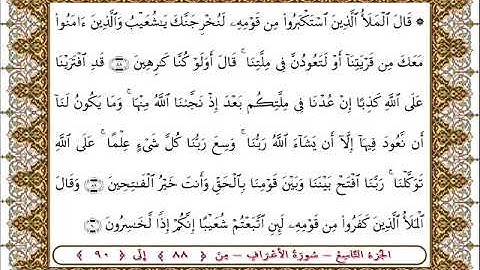 ۞ قَالَ ٱلْمَلَأُ ٱلَّذِينَ ٱسْتَكْبَرُوا۟ مِن قَوْمِهِۦ لَنُخْرِجَنَّكَ يَـٰشُعَيْبُ وَٱلَّذِينَ ءَامَنُوا۟
مَعَكَ مِن قَرْيَتِنَآ أَوْ لَتَعُودُنَّ فِى مِلَّتِنَا ۚ قَالَ أَوَلَوْ كُنَّا كَـٰرِهِينَ ۝٨٨ قَدِ ٱفْتَرَيْنَا
عَلَى ٱللَّهِ كَذِبًا إِنْ عُدْنَا فِى مِلَّتِكُم بَعْدَ إِذْ نَجَّىٰنَا ٱللَّهُ مِنْهَا ۚ وَمَا يَكُونُ لَنَآ
أَن نَّعُودَ فِيهَآ إِلَّآ أَن يَشَآءَ ٱللَّهُ رَبُّنَا ۚ وَسِعَ رَبُّنَا كُلَّ شَىْءٍ عِلْمًا ۚ عَلَى ٱللَّهِ
تَوَكَّلْنَا ۚ رَبَّنَا ٱفْتَحْ بَيْنَنَا وَبَيْنَ قَوْمِنَا بِٱلْحَقِّ وَأَنتَ خَيْرُ ٱلْفَـٰتِحِينَ ۝٨٩ وَقَالَ
ٱلْمَلَأُ ٱلَّذِينَ كَفَرُوا۟ مِن قَوْمِهِۦ لَئِنِ ٱتَّبَعْتُمْ شُعَيْبًا إِنَّكُمْ إِذًا لَّخَـٰسِرُونَ ۝٩٠
الجزء التاسع - سورة الأعراف - من ﴿ ٨٨ ﴾ إلى ﴿ ٩٠ ﴾